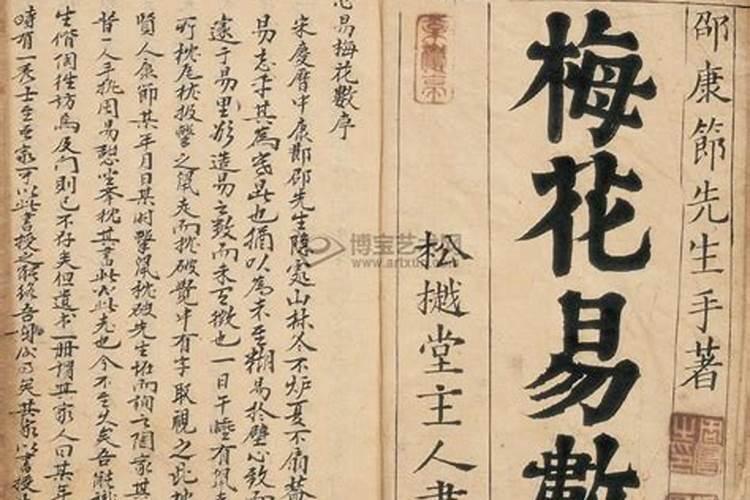 邵康節先生手著
梅花易數
松樾堂主人書
心易梅花數序
宋慶曆中康節邵先生隱處山林冬不炉夏不扇蓋
易忘乎其為寒暑也猶以為未至糊易於壁心致而
邃于易里欲造易之數而未至徵也一日午睡有鼠走
所枕瓦枕投擊之鼠走而枕破覺中有字取視之此枕
賢人康節某年月日某時擊鼠枕破先生怪而詢之陶家其
昔一人手执周易憩坐举枕其書此必此老也今不至久矣吾能識
生偕陶往訪焉及門則已不存矣但遺書一册謂其家人曰某年
時有一秀士至吾家可以此書授之能終吾身矣其家以書授
博宝艺术网
www.artxun.com